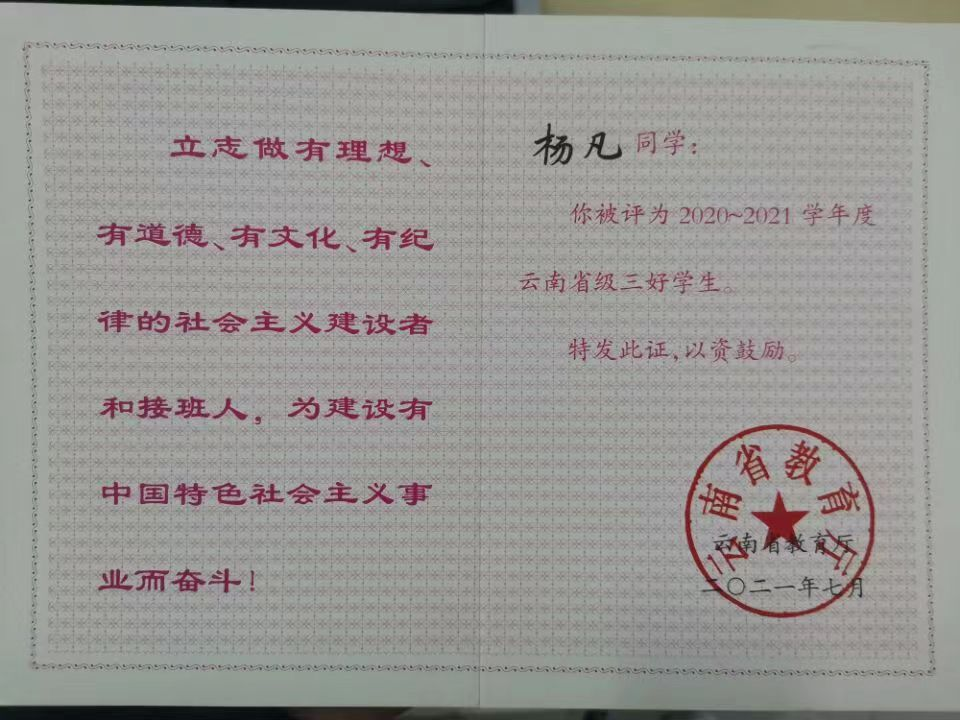 立志做有理想、
有道德、有文化、有纪
律的社会主义建设者
和接班人，为建设有
中国特色社会主义事
业而奋斗！
杨凡同学：
你被评为2020~2021学年度
云南省级三好学生。
特发此证，以资鼓励。
云南省教育厅
云南省教育厅
二〇二一年七月